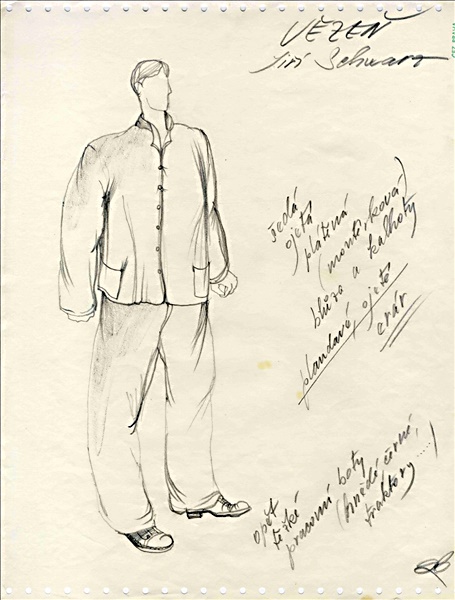 VĚZEŇ
Jiří Schwarz
šedá
ojetá
plátěná
(montérková)
blůza a kalhoty
plandavé, ojeté
erár
opět
těžké
pracovní boty
(hnědé černé,
traktory.....)